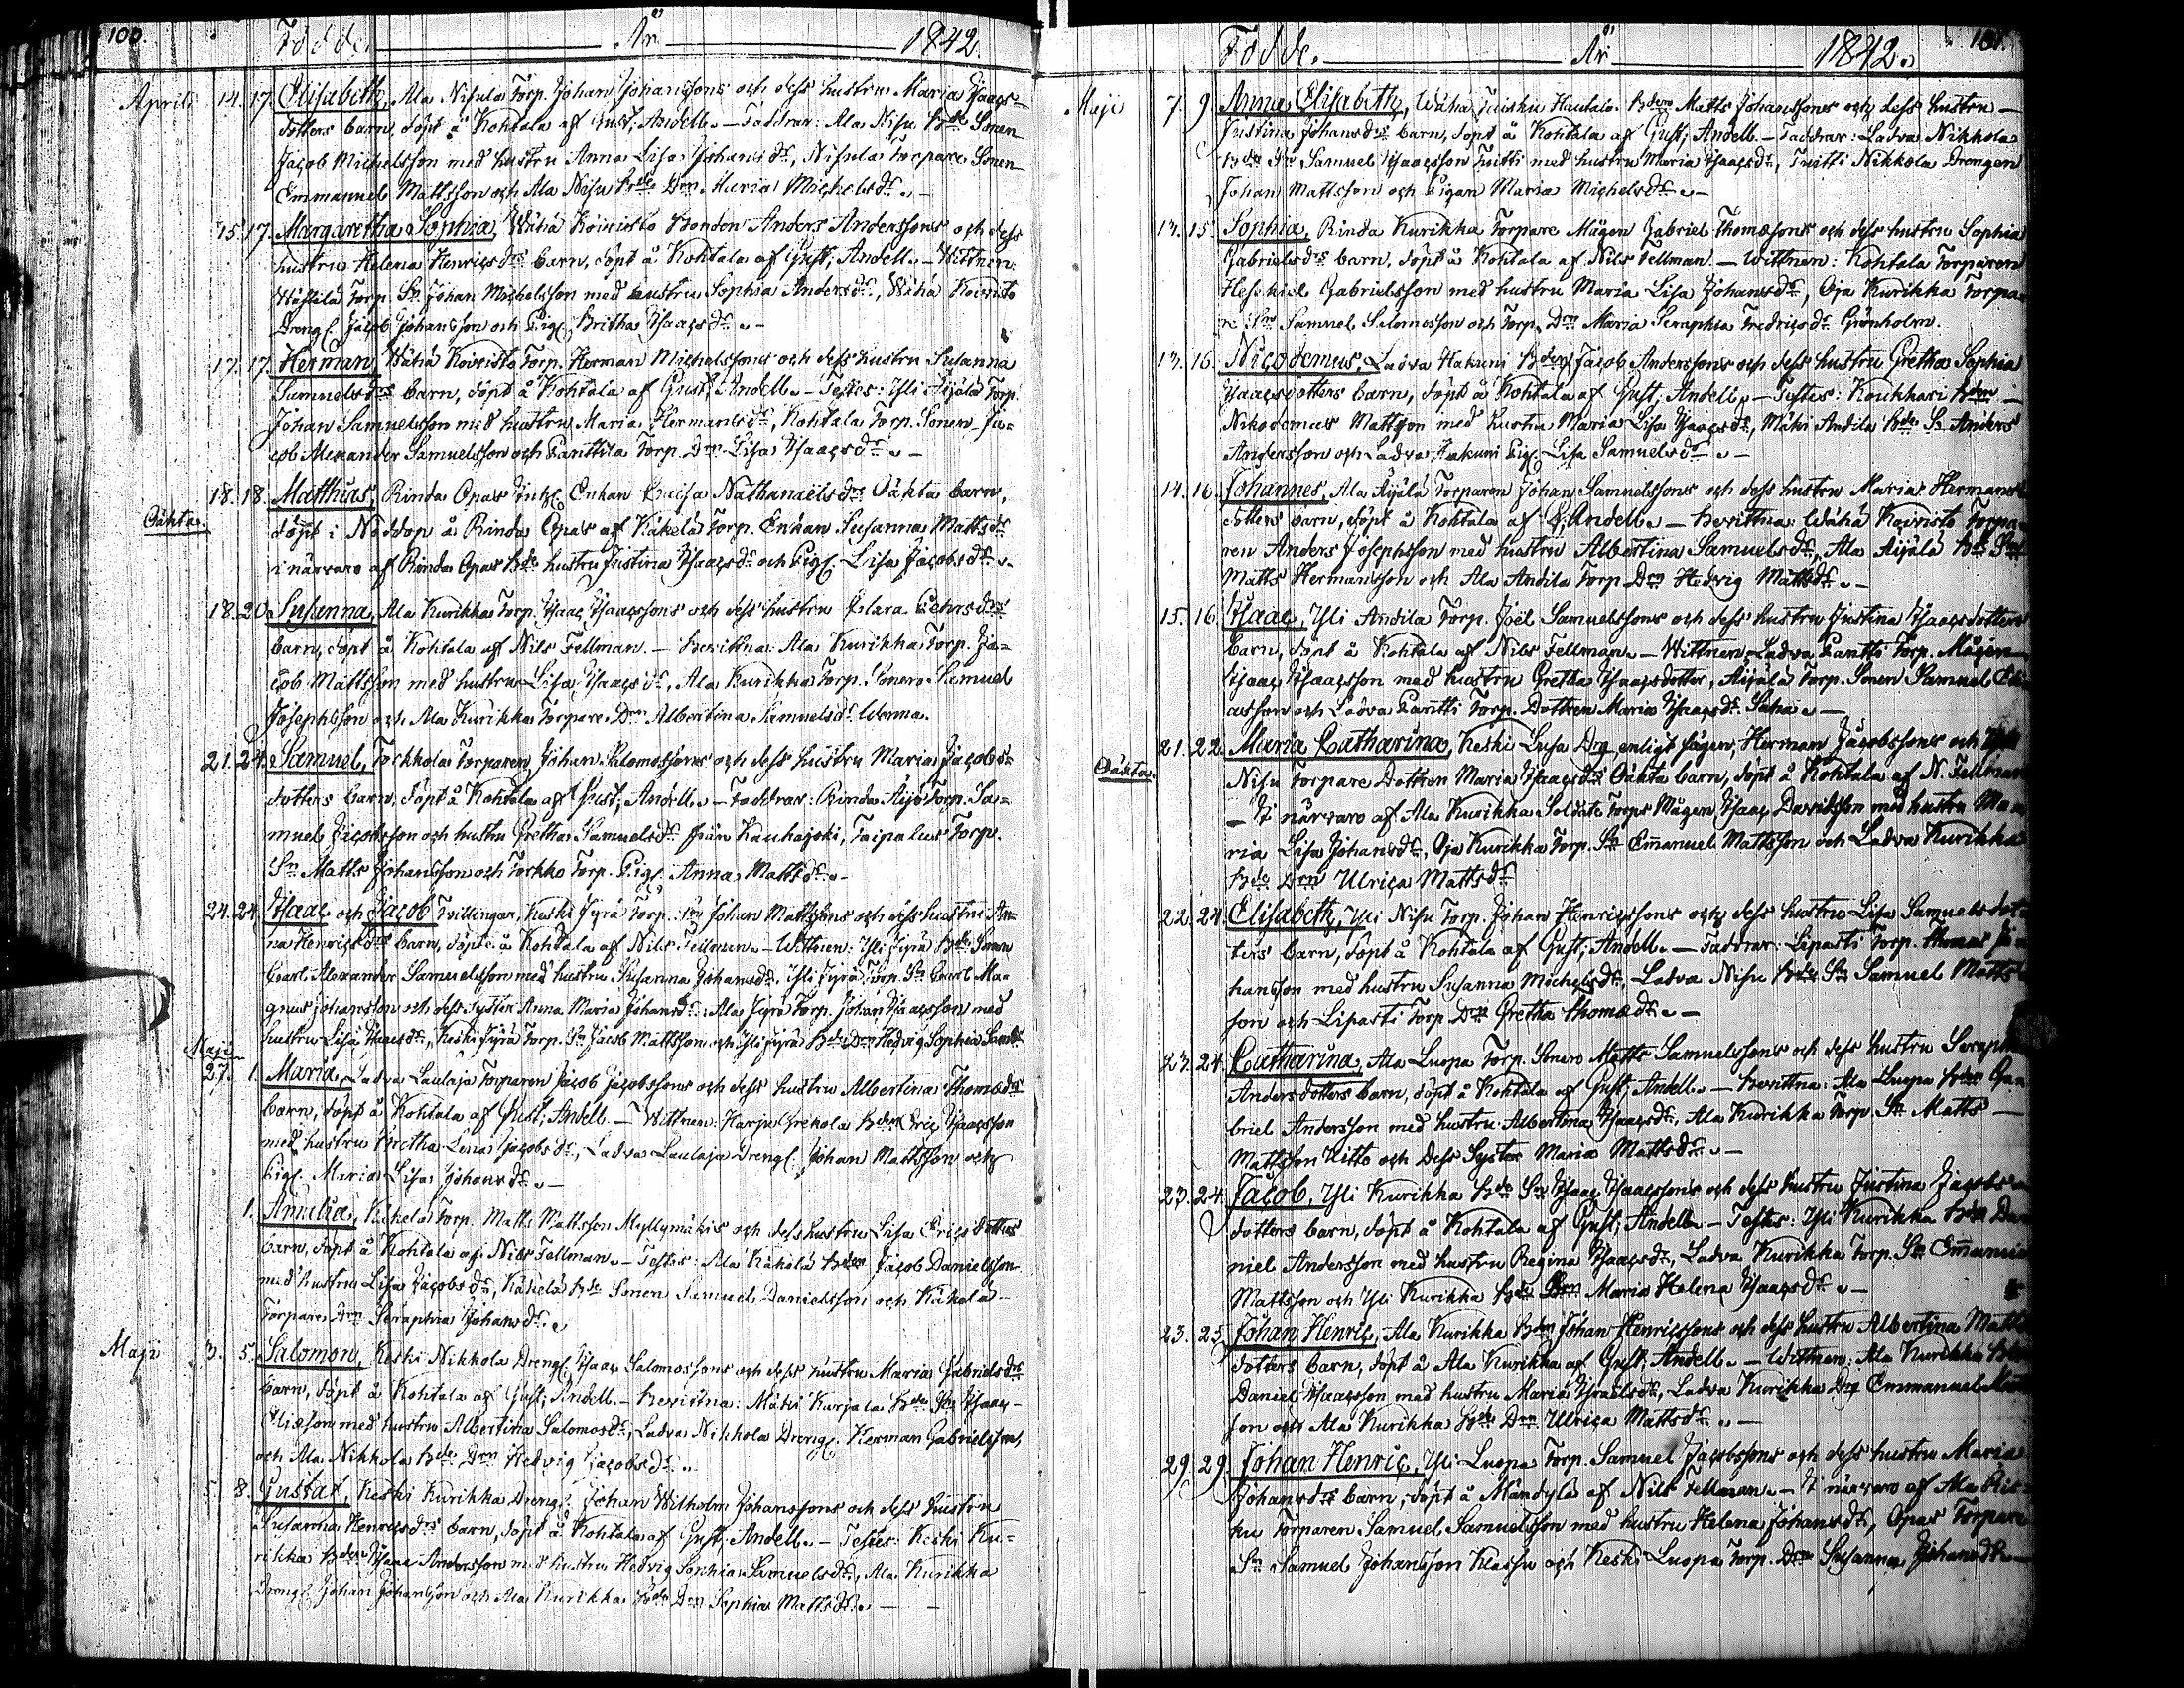 100.
Födde. År 1842.
Aprili 14. 17. Elisabeth, Ala Nisula Torp. Johan Johanssons och dess hustru Maria Isaacs-
dotters barn, döpt å Kohtala af Gust. Andell. – Faddrar: Ala Nisu Bde Sonen
Jacob Michelsson med hustru Anna Lisa Johansdr, Nisula Torpare Sonen
Emmanuel Mattsson och Ala Nisu Bde Drn Maria Michelsdr. –
15. 17. Margaretha Sophia, Wähä Koivisto Bonden Anders Anderssons och dess
hustru Helena Henricsdrs barn, döpt å Kohtala af Gust. Andell. – Wittnen:
Torp. Sn Johan Michelsson med hustru Sophia Andersdr, Wähä Koivisto
Dreng. Jacob Johansson och Pig. Britha Isaacsdr. –
17. 17. Herman, Wähä Koivisto Torp. Herman Michelssons och dess hustru Susanna
Samuelsdrs barn, döpt å Kohtala af Gust. Andell. – Testes: Yli Äijälä Torp.
Johan Samuelsson med hustru Maria Hermansdr, Kohtala Torp. Sonen Ja-
cob Alexander Samuelsson och Panttila Torp. Drn Lisa Isaacsdr. –
Oäkta. 18. 18. Matthias, Rinda Opas Enkan Lovisa Nathanaëlsdrs Oäkta barn,
döpt i Nöddop å Rinda Opas af Käkelä Torp. Enkan Susanna Mattsdr
i närvaro af Rinda Opas Bde hustru Justina Isaacsdr och Pig. Lisa Jacobsdr.
18. 20. Susanna, Ala Kurikka Torp. Isaac Isaacssons och dess hustru Clara Pehrsdrs
barn, döpt å Kohtala af Nils Fellman. – Bevittna: Ala Kurikka Torp. Ja-
cob Mattsson med hustru Lisa Isaacsdr, Ala Kurikka Torp. Sonen Samuel
Josephsson och Ala Kurikka Torpare Drn Albertina Samuelsdr Wenna.
21. 24. Samuel, Torkkola Torparen Johan Salomossons och dess hustru Maria Jacobs-
dotters barn, döpt å Kohtala af Gust. Andell. – Faddrar: Rinda Äijö Torp. Sa-
muel Jacobsson och hustru Gretha Samuelsdr från Kauhajoki, Taipalus Torp.
Sn Matts Johansson och Torkko Torp. Pig. Anna Mattsdr. –
24. 24. Isaac och Jacob Tvillingar, Keski Jyrä Torp. Sn Johan Mattssons och dess hustru An-
na Henricsdrs barn, döpte å Kohtala af Nils Fellman. – Wittnen: Yli Jyrä Bde Sonen
Carl Alexander Samuelsson med hustru Susanna Johansdr, Yli Jyrä Torp. Sn Carl Ma-
gnus Johansson och dess Syster Anna Maria Johansdr: Ala Jyrä Torp. Johan Isaacsson med
hustru Lisa Isaacsdr, Keski Jyrä Torp. Sn Jacob Mattsson och Yli Jyrä Bde Drn Hedvig Sophia Samlsdr
Maji
27. 1. Maria, Ladva Laulaja Torparen Jacob Jacobssons och dess hustru Albertina Thomædrs
barn, döpt å Kohtala af Gust. Andell. – Wittnen: Harju Grekola Bden Eric Isaacsson
med hustru Gretha Lena Jacobsdr, Ladva Laulaja Dreng. Johan Mattsson och
Pig. Maria Lisa Johansdr. –
1. Amalia, Käkelä Torp. Matts Mattsson Myllymäkis och dess hustru Lisa Erics dotters
barn, döpt å Kohtala af Nils Fellman. – Testes: Ala Käkelä Bden Jacob Danielsson
med hustru Lisa Jacobsdr, Käkelä Bde Sonen Samuel Danielsson och Käkelä –
Torpare Drn Seraphia Johansdr.
Maji 3. 5. Salomon, Keski Nikkola Dreng. Isaac Salomossons och dess hustru Maria Gabrielsdrs
barn, döpt å Kohtala af Gust. Andell. – Bevittna: Mäki Karjala Bde Sn Isaac
Eliæson med hustru Albertina Salomosdr, Ladva Nikkola Dreng. Herman Gabrielsson,
och Ala Nikkola Bde Drn Hedvig Jacobsdr.
5. 8. Gustaf, Keski Kurikka Dreng. Johan Wilhelm Johanssons och dess hustru
Susanna Henricsdrs barn, döpt å Kohtala af Gust. Andell. – Testes: Keski Ku-
rikka Bden Isaac Andersson med hustru Hedvig Sophia Samuelsdr, Ala Kurikka
Dreng. Johan Johansson och Ala Kurikka Bde Drn Sophia Mattsdr. –
101.
Födde. År 1842.
Maji 7. 9. Anna Elisabeth, Wähä Juisku Hautala Bdens Matts Johanssons och dess hustru –
Justina Johansdrs barn, döpt å Kohtala af Gust. Andell. – Faddrar: Ladva Nikkola
Bde Sn Samuel Isaacsson Tuitti med hustru Maria Isaacsdr, Tuitti Nikkola Drengen
Johan Mattsson och Pigan Maria Michelsdr. –
13. 15. Sophia, Rinda Kurikka Torpare Mågen Gabriel Thomæsons och dess hustru Sophia
Gabrielsdrs barn, döpt å Kohtala af Nils Fellman. – Wittnen: Kohtala Torparen
Heskiel Gabrielsson med hustru Maria Lisa Johansdr, Oja Kurikka Torpa-
re Sn Samuel Salomosson och Torp. Drn Maria Seraphia Fredricsdr Grönholm.
13. 16. Nicodemus, Ladva Hakuni Bdens Jacob Anderssons och dess hustru Gretha Sophia
Isaacsdotters barn, döpt å Kohtala af Gust. Andell. – Testes: Koukkari Bden –
Nikodemus Mattsson med hustru Maria Lisa Isaacsdr, Mäki Andila Bde Sn Anders
Andersson och Ladva Hakuni Pig. Lisa Samuelsdr. –
14. 16. Johannes, Ala Äijälä Torparen Johan Samuelssons och dess hustru Maria Hermans
dotters barn, döpt å Kohtala af G. Andell. – Bevittna: Wähä Koivisto Torpa-
ren Anders Josephsson med hustru Albertina Samuelsdr, Ala Äijälä Bde Sn
Matts Hermansson och Ala Andila Torp Drn Hedvig Mattsdr. –
15. 16. Isaac, Yli Andila Torp. Joël Samuelssons och dess hustru Justina Isaacsdotters
barn, döpt å Kohtala af Nils Fellman. – Wittnen: Ladva Pantti Torp. Mågen
Isaac Isaacsson med hustru Gretha Isaacsdotter, Äijälä Torp. Sonen Samuel Eli-
asson och Ladva Pantti Torp. Dottren Maria Isaacsdr. Saha. –
Oäkta. 21. 22. Maria Catharina, Keski Lusa Drg enligt sägen, Herman Jacobssons och
Nisu Torpare Dottren Maria Isaacsdrs Oäkta barn, döpt å Kohtala af N. Fellman
– I närvaro af Ala Kurikka Soldate Torps Mågen Isaac Davidsson med hustru Ma-
ria Lisa Johansdr, Oja Kurikka Torp. Sn Em̄anuel Mattsson och Ladva Kurikka
Bde Drn Ulrica Mattsdr
22. 24. Elisabeth, Yli Nisu Torp. Johan Henricssons och dess hustru Lisa Samuelsdot-
ters barn, döpt å Kohtala af Gust. Andell. – Faddrar: Liparti Torp. Thomas Jo-
hansson med hustru Susanna Michelsdr, Ladva Nisu Bde Sn Samuel Matts-
son och Liparti Torp Drn Gretha Thomædr. –
23. 24. Catharina, Ala Luopa Torp. Sonens Matts Samuelssons och dess hustru Seraphia
Andersdotters barn, döpt å Kohtala af Gust. Andell. – Bevittna: Ala Luopa Bden Ga-
briel Andersson med hustru Albertina Isaacsdr, Ala Kurikka Torp. Sn Matts –
Mattsson Kitto och dess Syster Maria Mattsdr. –
23. 24. Jacob, Yli Kurikka Bde Sn Isaac Isaacssons och dess hustru Justina Jacobs-
dotters barn, döpt å Kohtala af Gust. Andell. – Testes: Yli Kurikka Bden Da-
niel Andersson med hustru Regina Isaacsdr, Ladva Kurikka Torp. Sn Em̄anuel
Mattsson och Yli Kurikka Bde Drn Maria Helena Isaacsdr. –
23. 25. Johan Henric, Ala Kurikka Bden Johan Henricssons och dess hustru Albertina Matts
dotters barn, döpt å Ala Kurikka af Gust. Andell. – Wittnen: Ala Kurikka Bden
Daniel Isaacsson med hustru Maria Israelsdr, Ladva Kurikka Drg Emmanuel
son och Ala Kurikka Bde Drn Ulrica Mattsdr. –
29. 29. Johan Henric, Yli Luopa Torp. Samuel Jacobssons och dess hustru Maria
Johansdrs barn, döpt å Mändylä af Nils Fellman. – I närvaro af Ala Ris-
ku Torparen Samuel Samuelsson med hustru Helena Johansdr, Opas Torpare
Sn Samuel Johansson Klassu och Keski Luopa Torp. Drn Susanna Johansdr –